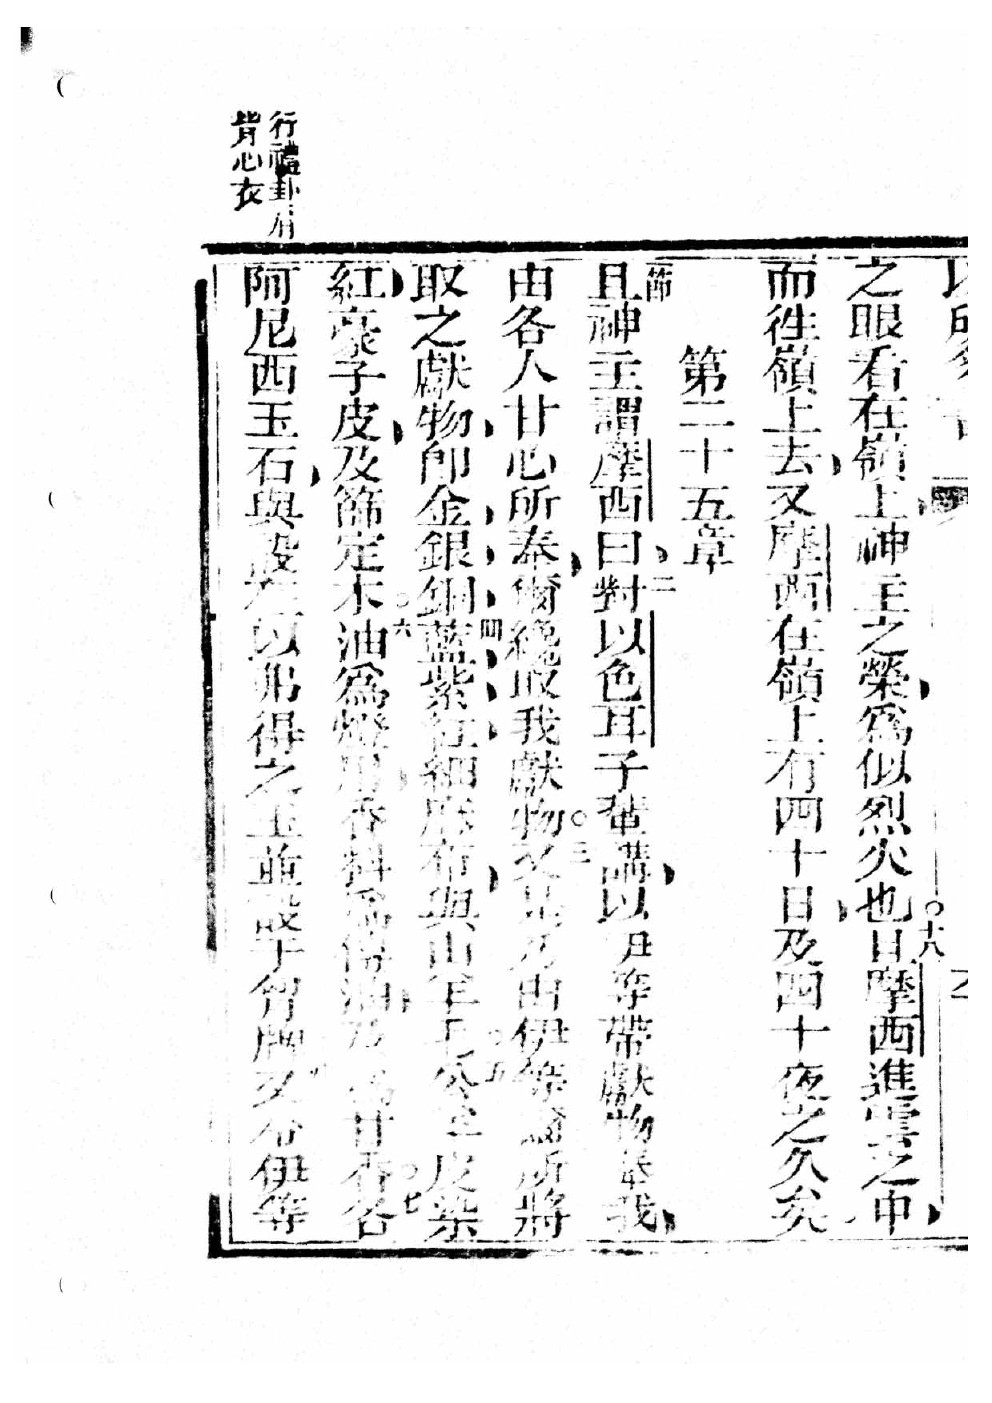 之眼看在嶺上神主之榮爲似烈火也且摩西進雲之中
而徃嶺上去又摩西在嶺上有四十日及四十夜之久矣
第二十五章
且神主謂摩西曰對以色耳子輩講以伊等帶獻物奉我
由各人甘心所奉爾纔取我獻物又此乃由伊等爾所將
取之獻物卽金銀銅藍紫紅細麻布與山羊毛公羊皮染
紅豪子皮及篩定木油爲燈用香料爲傅油及爲甘香各
阿尼西玉石與設在以弗得之玉並設于胷牌又令伊等
行禮卦肩
背心衣